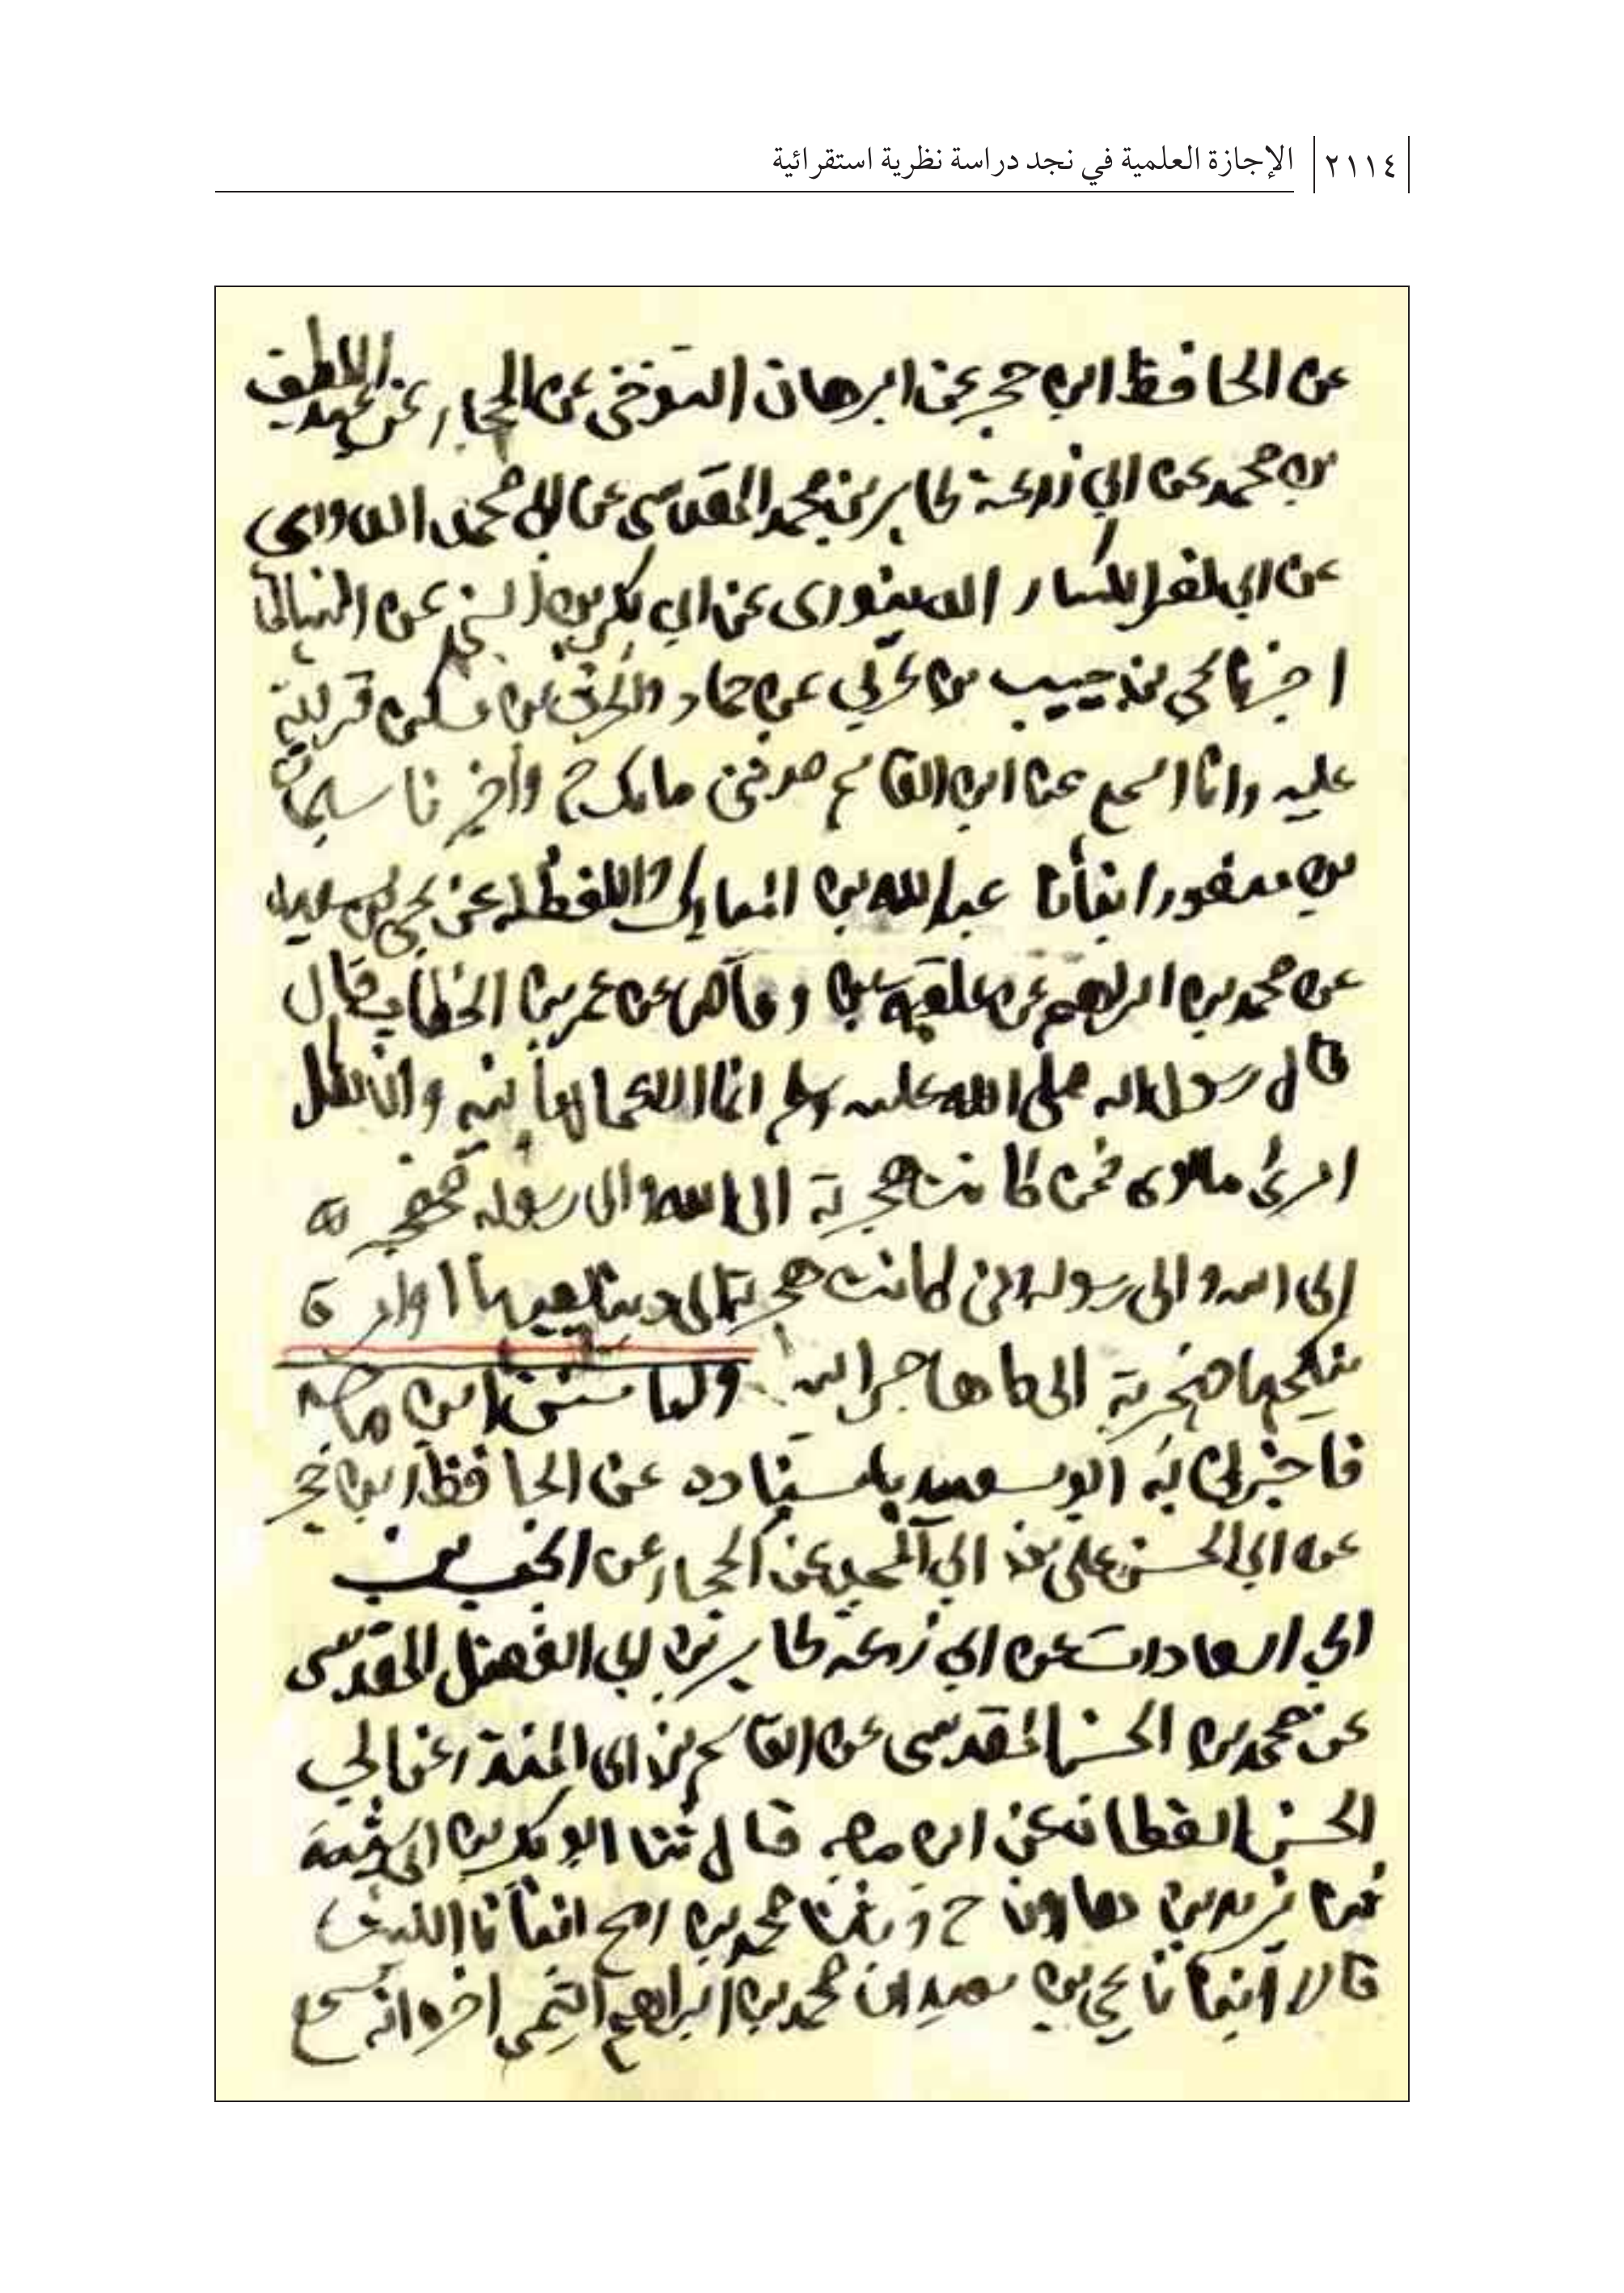 ٢١١٤ الإجازة العلمية في نجد دراسة نظرية استقرائية
عن الحافظ ابن حجر عن ابرهان التنوخي عن الحجار عن عبد اللطيف
بن محمد عن ابي زرعة طاهر بن محمد المقدسي عن ابي محمد الداوي
عن ابي الكسار الدينوري عن ابي بكر بن السني عن النسائي
اخبرنا يحي بن حبيب بن عربي عن حماد والحرث بن مسكين قرائة
عليه وانا اسمع عن ابن القاسم حدثني مالك ح وأخبرنا سليمان
بن منصور انبأنا عبدالله بن المبارك واللفظ له عن يحي بن سعيد
عن محمد بن ابراهيم عن علقمة بن وقاص عن عمر بن الخطاب قال
قال رسول الله صلى الله عليه وسلم انما الاعمال بالنية وانما لكل
امرئ ما نوى فمن كانت هجرته الى الله والى رسوله فهجرته
إلى الله والى رسوله ومن كانت هجرته الى دنيا يصيبها او امرءة
ينكحها فهجرته الى ما هاجر اليه واما سنن ابن ماجه
فاخبرني به ابو سعيد باسناده عن الحافظ ابن حجر
عن ابي الحسن علي بن ابي المجد عن الحجار عن انجب بن
ابي السعادات عن ابي زرعة طاهر بن ابي الفضل المقدسي
عن محمد بن الحسن المقدسي عن القاسم بن ابي المنذر عن ابي
الحسن القطان عن ابن ماجه قال ثنا ابو بكر بن ابي شيبة
ثنا يزيد بن هارون ح وثنا محمد بن رمح انبأنا الليث
قالا أنبأنا يحي بن سعيد ان محمد بن ابراهيم التيمي اخبره انه سمع